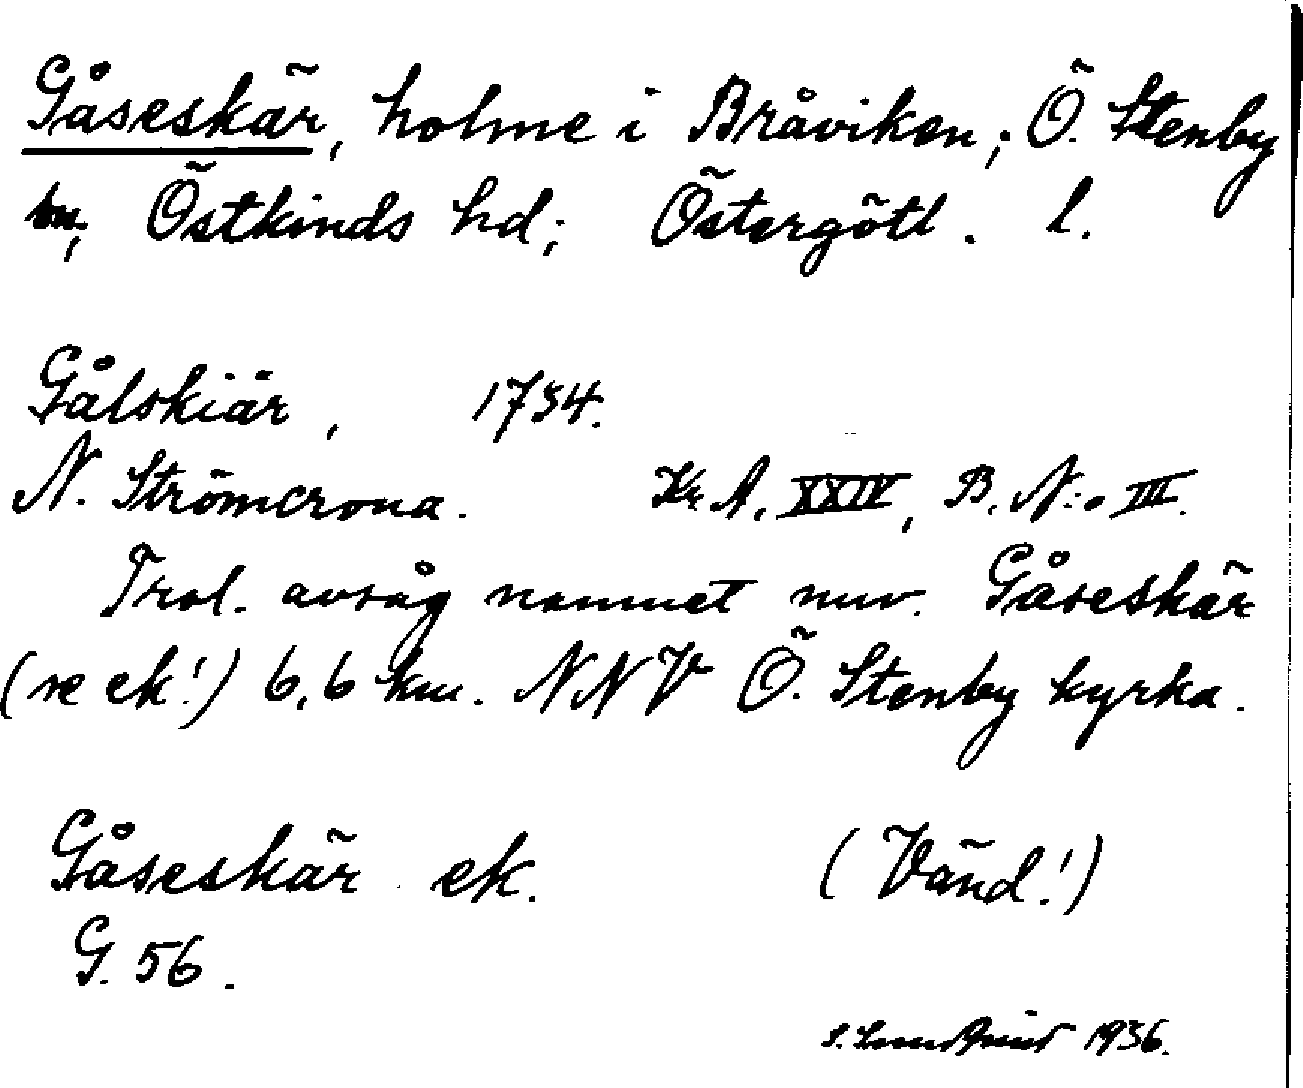 Gåseskär, holme i Bråviken; Ö. Stenby
sn; Östkinds hd; Östergötl. l.
Gålskiär, 1734.
N. Strömcrona. Kr. A. XXIV, B. N:o III.
Trol. avsåg namnet nuv. Gåseskär
(se ek!) 6,6 km. NNV Ö. Stenby kyrka.
Gåseskär ek. (Vänd!)
G. 56.
S. 1936.